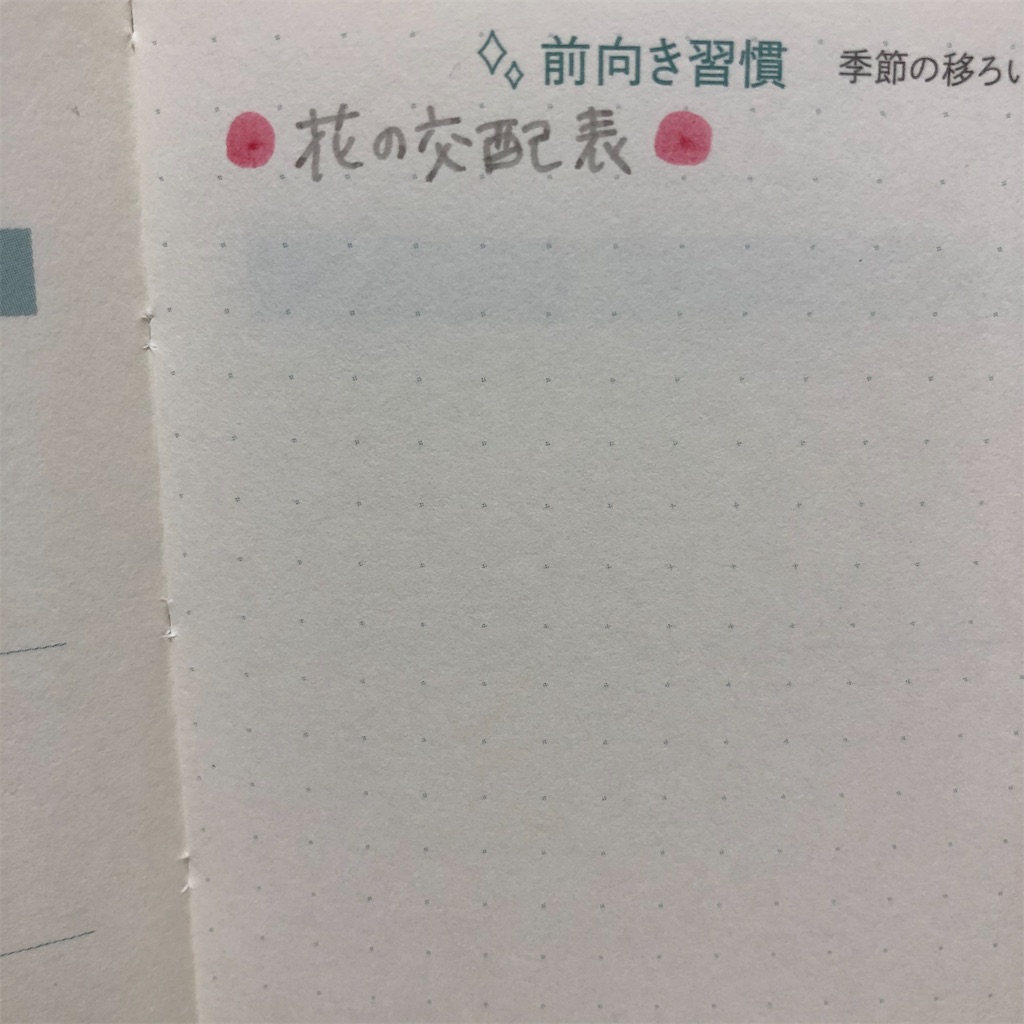 前向き習慣 季節の移ろい
花の交配表